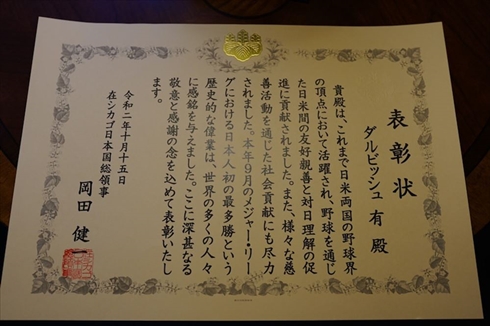 表彰状
ダルビッシュ 有 殿
貴殿は、これまで日米両国の野球界
の頂点において活躍され、野球を通じ
た日米間の友好親善と対日理解の促
進に貢献されました。また、様々な慈
善活動を通じた社会貢献にも尽力
されました。本年9月のメジャー・リー
グにおける日本人初の最多勝という
歴史的な偉業は、世界の多くの人々
に感銘を与えました。ここに深甚なる
敬意と感謝の念を込めて表彰いたし
ます。
令和二年十月十五日
在シカゴ日本国総領事
岡田 健一